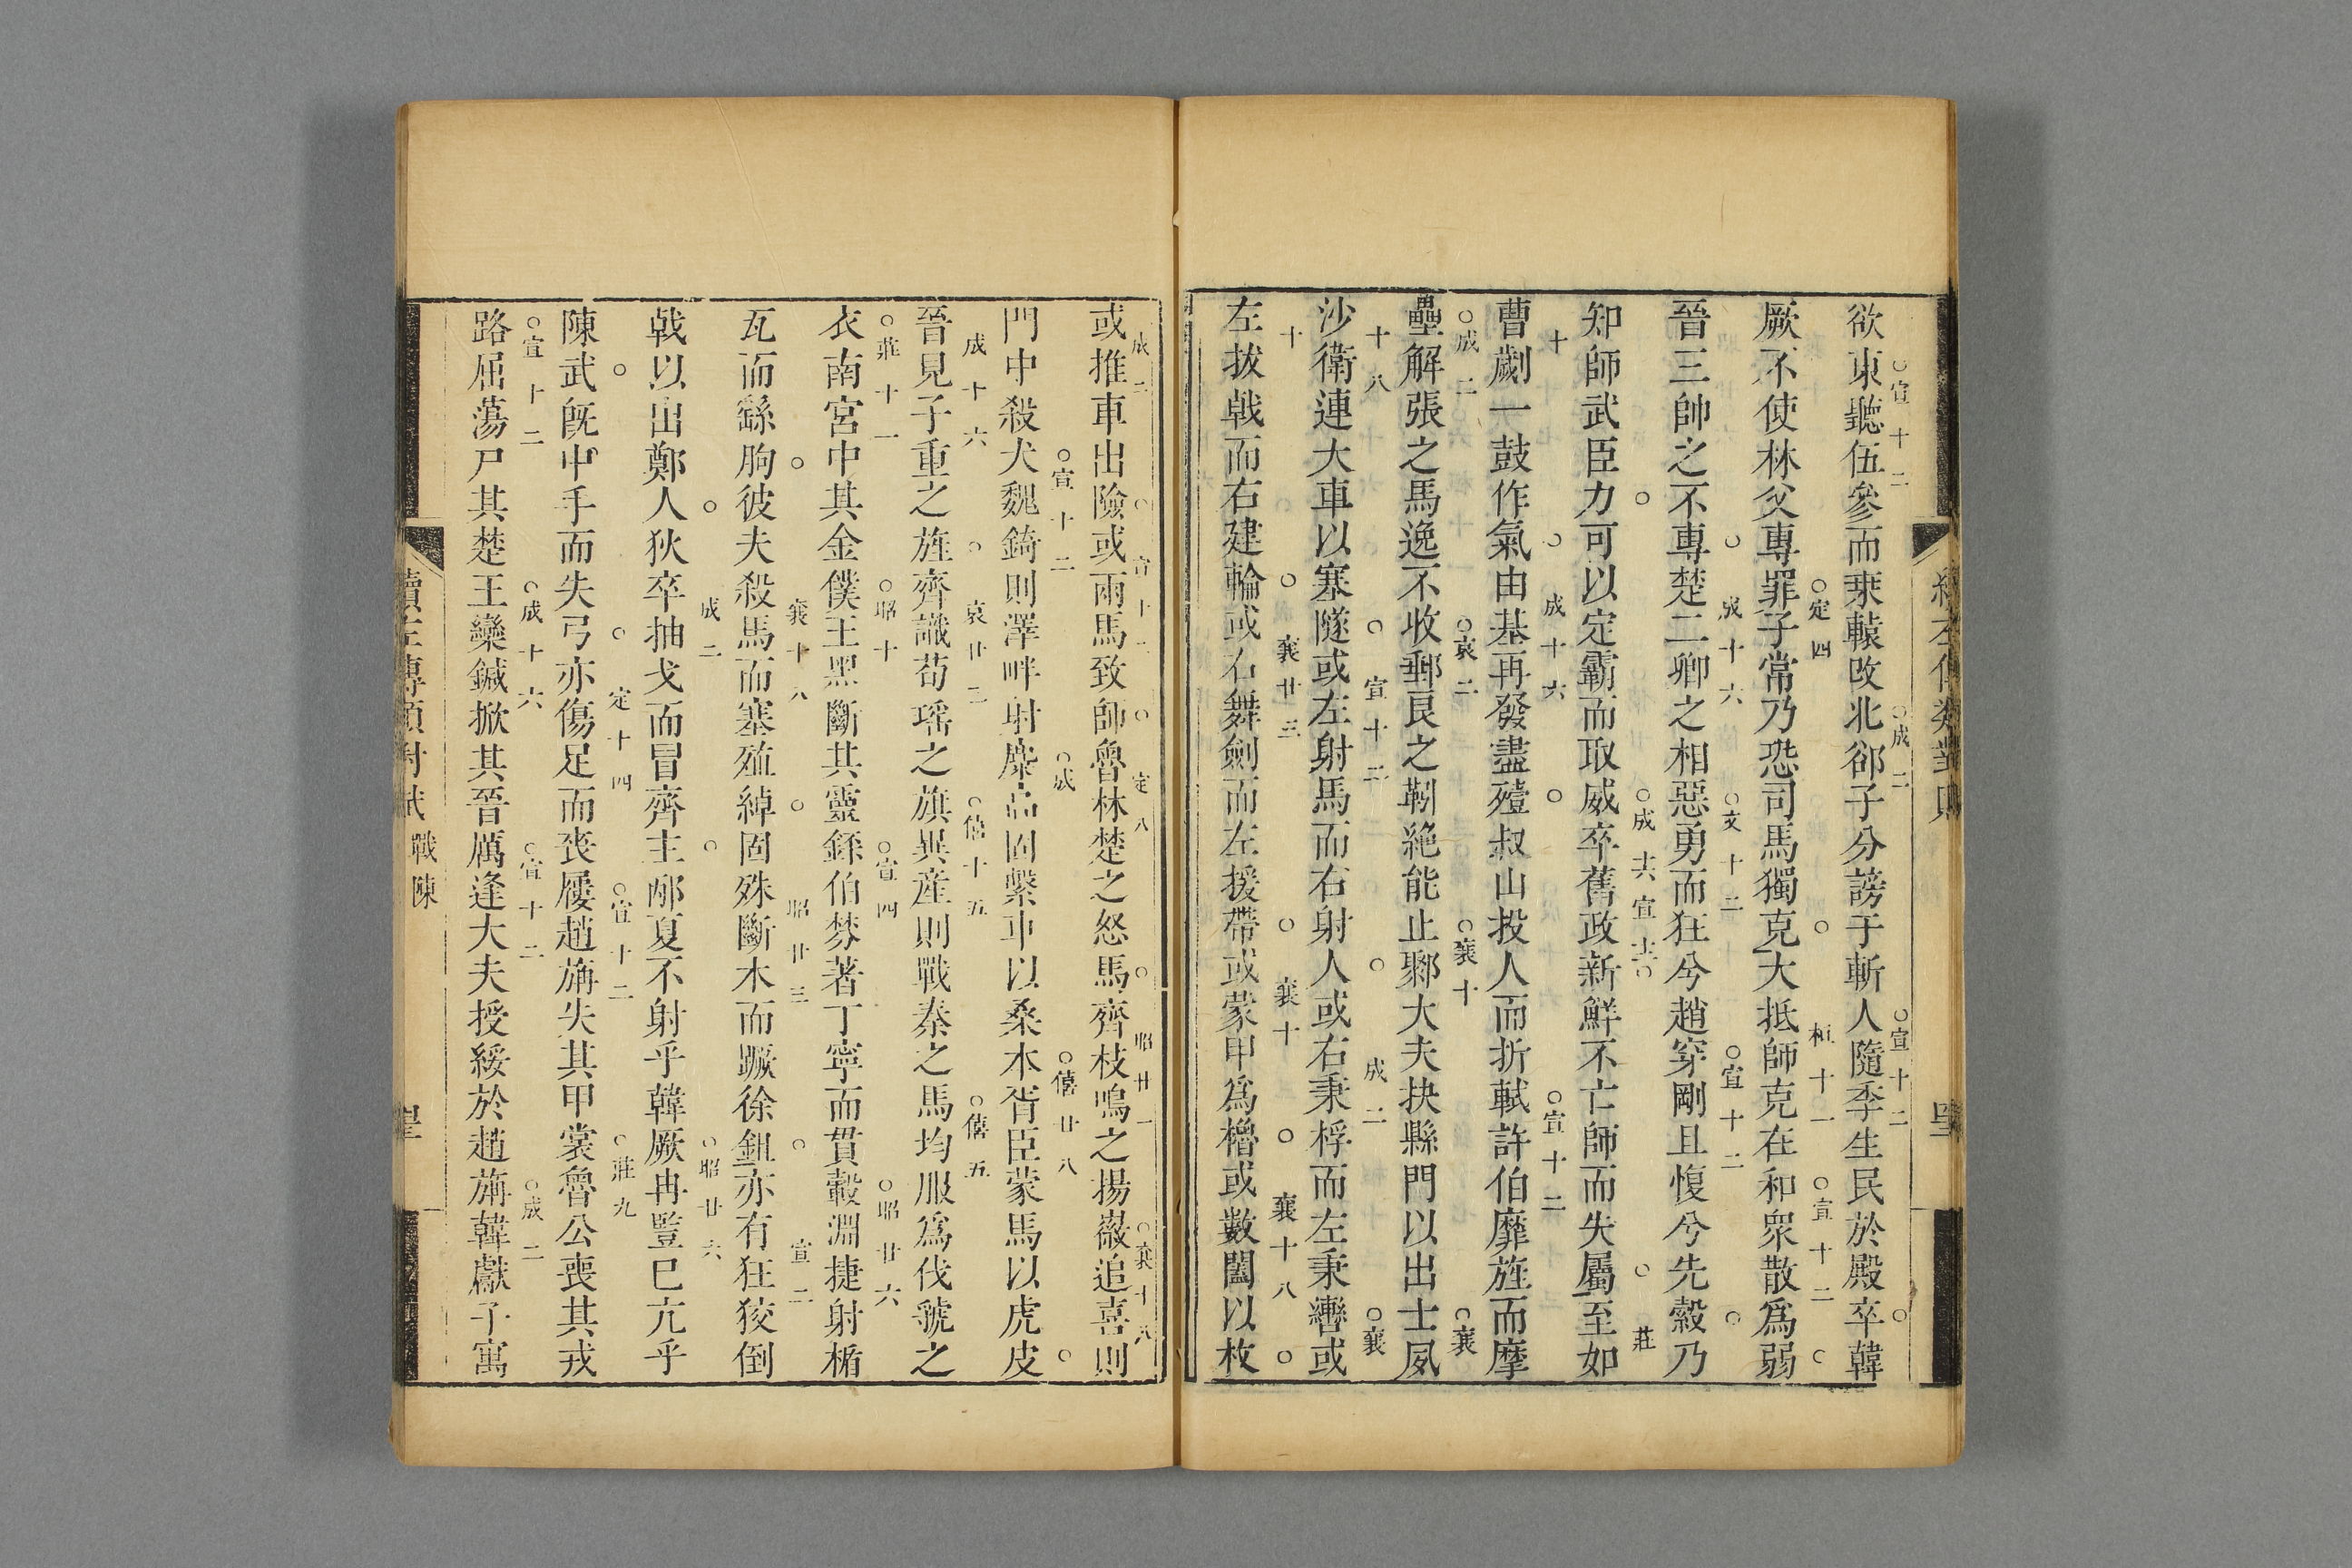 欲東聽伍參而乗轅改北郤子分謗于斬人隨季生民於殿卒韓
○宣十二 ○成二 ○宣十二 ○
厥不使林父專罪子常乃恐司馬獨克大抵師克在和衆散爲弱
○定四 ○ 桓十一 ○宣十二 ○
晉三帥之不專楚二卿之相惡勇而狂兮趙穿剛且愎兮先縠乃
○ 成十六 ○文十二 ○宣十二 ○
知師武臣力可以定霸而取威卒舊政新鮮不亡師而失屬至如
○ ○成十六 宣十二 ○ ○ 莊
曹劌一鼓作氣由基再發盡殪叔山投人而折軾許伯靡旌而摩
十 ○ 成十六 ○ ○宣十二
壘解張之馬逸不收郵良之靷絶能止郰大夫抉縣門以出士夙
○成二 ○哀二 ○襄十 ○襄
沙衛連大車以塞隧或左射馬而右射人或右秉桴而左秉轡或
十八 ○ 宣十二 ○ 成二 ○襄
左拔戟而右建輪或右舞劍而左援帶或蒙甲爲櫓或數闔以枚
十 ○ 襄廿三 ○ 襄十 ○ 襄十八 ○
或推車出險或兩馬致師魯林楚之怒馬齊枝鳴之揚嶶追喜則
成二 ○ 宣十二 ○ 定八 ○ 昭廿一 ○襄十八
門中殺犬魏錡則澤畔射麋高固繫車以桑木胥臣蒙馬以虎皮
○宣十二 ○成 ○僖廿八 ○
晉見子重之旌齊識荀瑤之旗異産則戰秦之馬均服爲伐虢之
成十六 ○ 哀廿二 ○僖十五 ○僖五
衣南宮中其金僕王黑斷其靈銔伯棼著丁寧而貫轂淵捷射楯
○莊十一 ○昭十 ○宣四 ○昭廿六
瓦而繇朐彼夫殺馬而塞殖綽固殊斷木而蹶徐鉏亦有狂狡倒
○ 襄十八 ○ 昭廿三 ○ 宣二
戟以出鄭人狄卒抽戈而冒齊主郕夏不射乎韓厥冉豎已亢乎
○ 成二 ○ ○昭廿六
陳武旣中手而失弓亦傷足而喪屨趙旃失其甲裳魯公喪其戎
○ ○ 定十四 ○宣十二 ○莊九
路屈蕩尸其楚王欒鍼掀其晉厲逢大夫授綏於趙旃韓獻子寓
○宣十二 ○成十六 ○宣十二 ○成二
戰陳